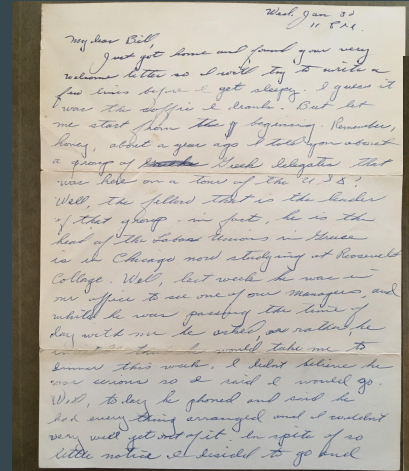 Wed. Jan 3d
11 P.M.
My dear Bill,
Just got home and found your very
welcome letter so I will try to write a
few lines before I get sleepy. I guess it
was the coffee I drank. But let
me start from the beginning. Remember,
honey, about a year ago I told you about
a group of Greek delegates that
was here on a tour of the U S A?
Well, the fellow that is the leader
of that group - in fact, he is the
head of the Labor Unions in Greece
is in Chicago now studying at Roosevelt
College. Well, last week he was in
our office to see one of our managers and
while he was passing the time of
day with me he asked, or rather, he
he would take me to
dinner this week. I didn't believe he
was serious so I said I would go.
Well, today he phoned and said he
had everything arranged and I couldn't
very well get out of it. In spite of so
little notice I decided to go and